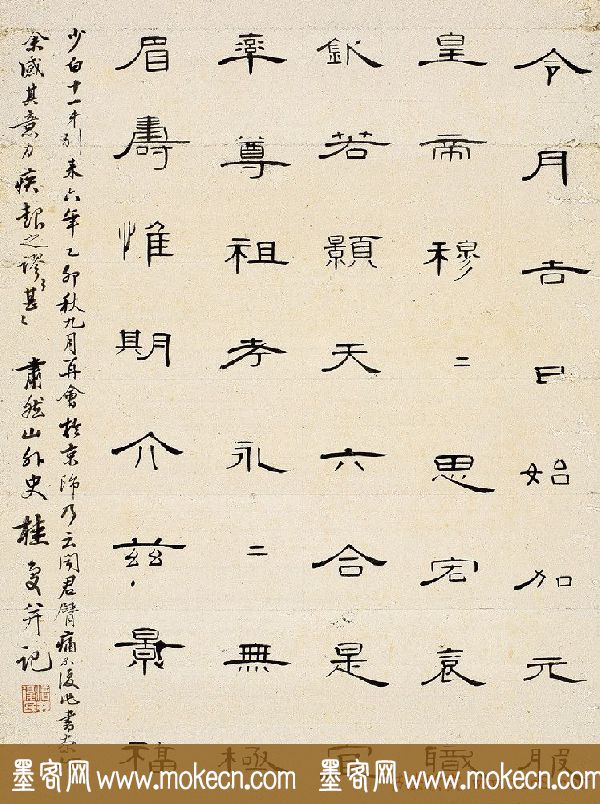 令月吉日始加元服
皇帝穆二思宏袞職
欽若顥天六合是
率尊祖考永二無極
眉壽惟期介茲景福
少白十一弟別來六年乙卯秋九月再會於京師乃云聞君臂痛不復作書
余感其意力疾報之謬〻甚〻 肅然山外史桂馥并記
墨客网 www.mokecn.com 墨客网 www.mokecn.com 墨客网 www.mokecn.com